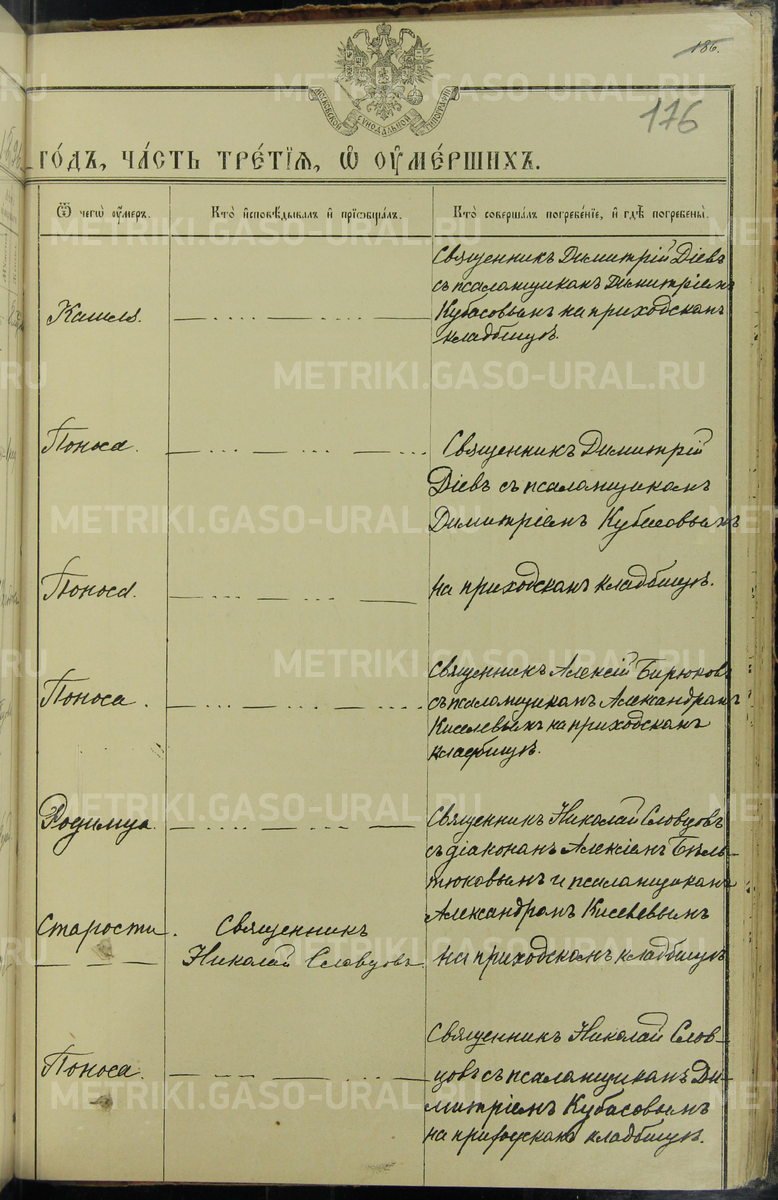 186.
176
МОСКОВСКОЙ СѴНОДАЛЬНОЙ ТИПОГРАФІИ
ГО́ДЪ, ЧА́СТЬ ТРЕ́ТІѦ, Ѡ҆ ОУ҆МЕ́РШИХЪ.
Ѿ чегѡ̀ оу҆́меръ.
Кто̀ и҆сповѣ́дывалъ и҆ прїѡбща́лъ.
Кто̀ соверша́лъ погребе́нїе, и҆ гдѣ̀ погребены̀.
Кашля.
Священникъ Димитрій Діевъ
съ псаломщикомъ Димитріемъ
Кубасовымъ на приходскомъ
кладбищѣ.
Поноса.
Священникъ Димитрій
Діевъ съ псаломщикомъ
Димитріемъ Кубасовымъ
Поноса.
на приходскомъ кладбищѣ.
Поноса.
Священникъ Алексій Бирюковъ
съ псаломщикомъ Александромъ
Киселевымъ на приходскомъ
кладбищѣ.
Родимца.
Священникъ Николай Словцовъ
съ діакономъ Алексіемъ Бѣль-
тюковымъ и псаломщикомъ
Александромъ Киселевымъ
Старости.
Священникъ
Николай Словцовъ
на приходскомъ кладбищѣ
Поноса.
Священникъ Николай Слов-
цовъ съ псаломщикомъ Ди-
митріемъ Кубасовымъ
на приходскомъ кладбищѣ.
METRIKI.GASO-URAL.RU